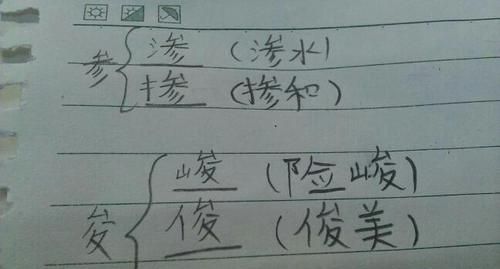 参 渗 (渗水)
掺 (掺和)
夋 峻 (险峻)
俊 (俊美)